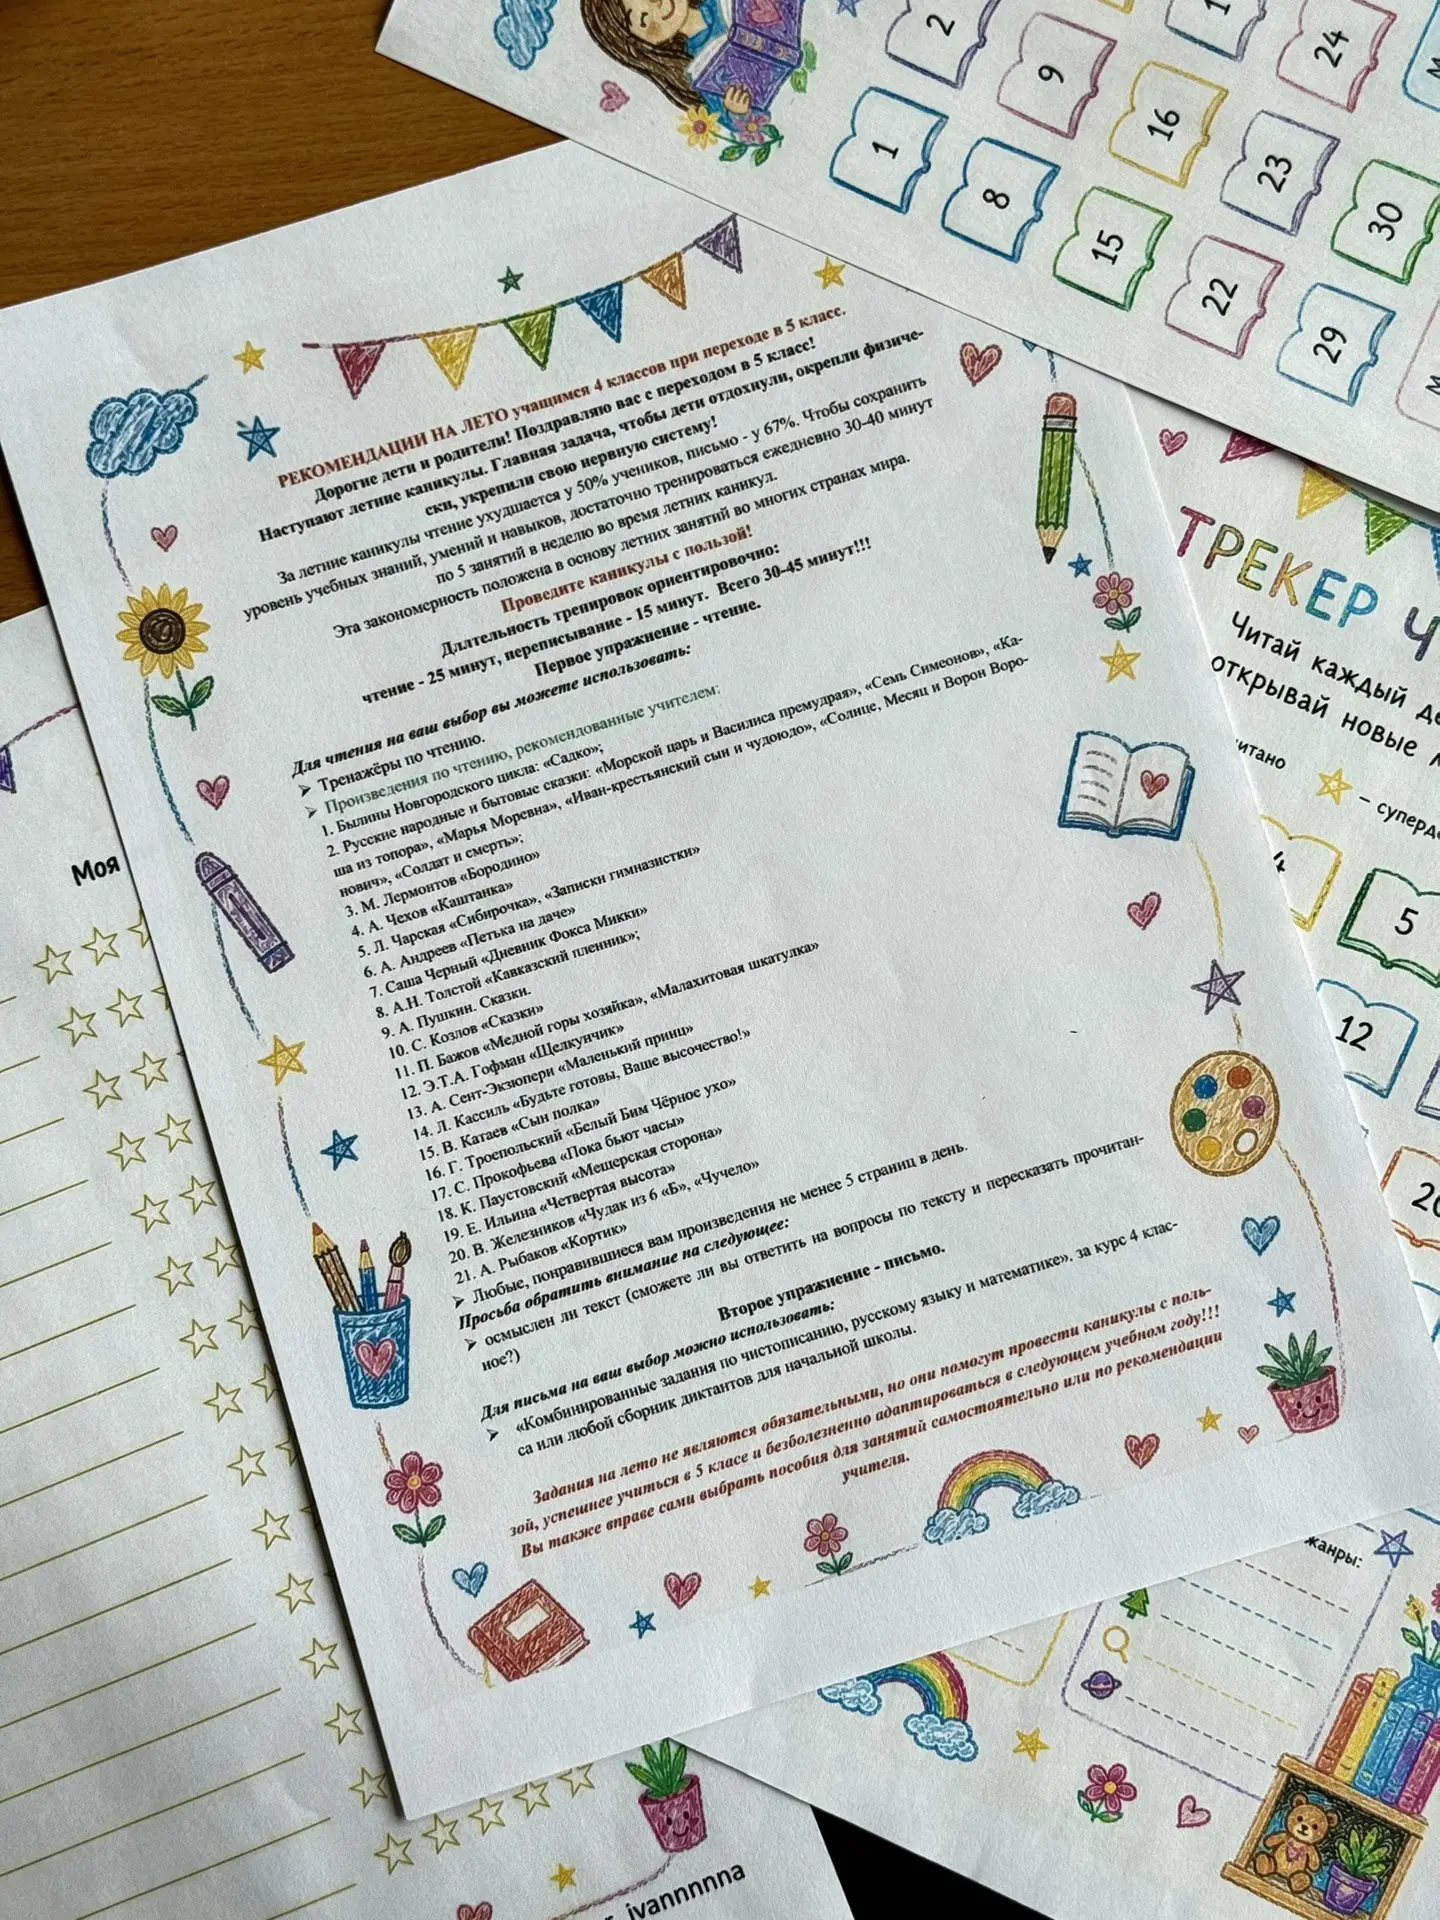 РЕКОМЕНДАЦИИ НА ЛЕТО учащимся 4 классов при переходе в 5 класс.
Дорогие дети и родители! Поздравляю вас с переходом в 5 класс!
Наступают летние каникулы. Главная задача, чтобы дети отдохнули, окрепли физиче-
ски, укрепили свою нервную систему!
За летние каникулы чтение ухудшается у 50% учеников, письмо - у 67%. Чтобы сохранить
уровень учебных знаний, умений и навыков, достаточно тренироваться ежедневно 30-40 минут
по 5 занятий в неделю во время летних каникул.
Эта закономерность положена в основу летних занятий во многих странах мира.
Проведите каникулы с пользой!
Длятельность тренировок ориентировочно:
чтение - 25 минут, переписывание - 15 минут. Всего 30-45 минут!!!
Первое упражнение - чтение.
Для чтения на ваш выбор вы можете использовать:
➢ Тренажёры по чтению.
➢ Произведения по чтению, рекомендованные учителем:
1. Былины Новгородского цикла: «Садко»;
2. Русские народные и бытовые сказки: «Морской царь и Василиса премудрая», «Семь Симеонов», «Ка-
ша из топора», «Марья Моревна», «Иван-крестьянский сын и чудоюдо», «Солнце, Месяц и Ворон Воро-
нович», «Солдат и смерть»;
3. М. Лермонтов «Бородино»
4. А. Чехов «Каштанка»
5. Л. Чарская «Сибирочка», «Записки гимназистки»
6. А. Андреев «Петька на даче»
7. Саша Черный «Дневник Фокса Микки»
8. А.Н. Толстой «Кавказский пленник»;
9. А. Пушкин. Сказки.
10. С. Козлов «Сказки»
11. П. Бажов «Медной горы хозяйка», «Малахитовая шкатулка»
12. Э.Т.А. Гофман «Щелкунчик»
13. А. Сент-Экзюпери «Маленький принц»
14. Л. Кассиль «Будьте готовы, Ваше высочество!»
15. В. Катаев «Сын полка»
16. Г. Троепольский «Белый Бим Чёрное ухо»
17. С. Прокофьева «Пока бьют часы»
18. К. Паустовский «Мещерская сторона»
19. Е. Ильина «Четвертая высота»
20. В. Железников «Чудак из 6 «Б», «Чучело»
21. А. Рыбаков «Кортик»
➢ Любые, понравившиеся вам произведения не менее 5 страниц в день.
Просьба обратить внимание на следующее:
➢ осмыслен ли текст (сможете ли вы ответить на вопросы по тексту и пересказать прочитан-
ное?)
Второе упражнение - письмо.
Для письма на ваш выбор можно использовать:
➢ «Комбинированные задания по чистописанию, русскому языку и математике». за курс 4 клас-
са или любой сборник диктантов для начальной школы.
Задания на лето не являются обязательными, но они помогут провести каникулы с поль-
зой, успешнее учиться в 5 классе и безболезненно адаптироваться в следующем учебном году!!!
Вы также вправе сами выбрать пособия для занятий самостоятельно или по рекомендации
учителя.
1
2
8
9
15
16
22
23
24
29
30
ТРЕКЕР Ч
Читай каждый де
открывай новые м
читано
– суперд
4
5
12
20
жанры:
Моя
ivannnnnna